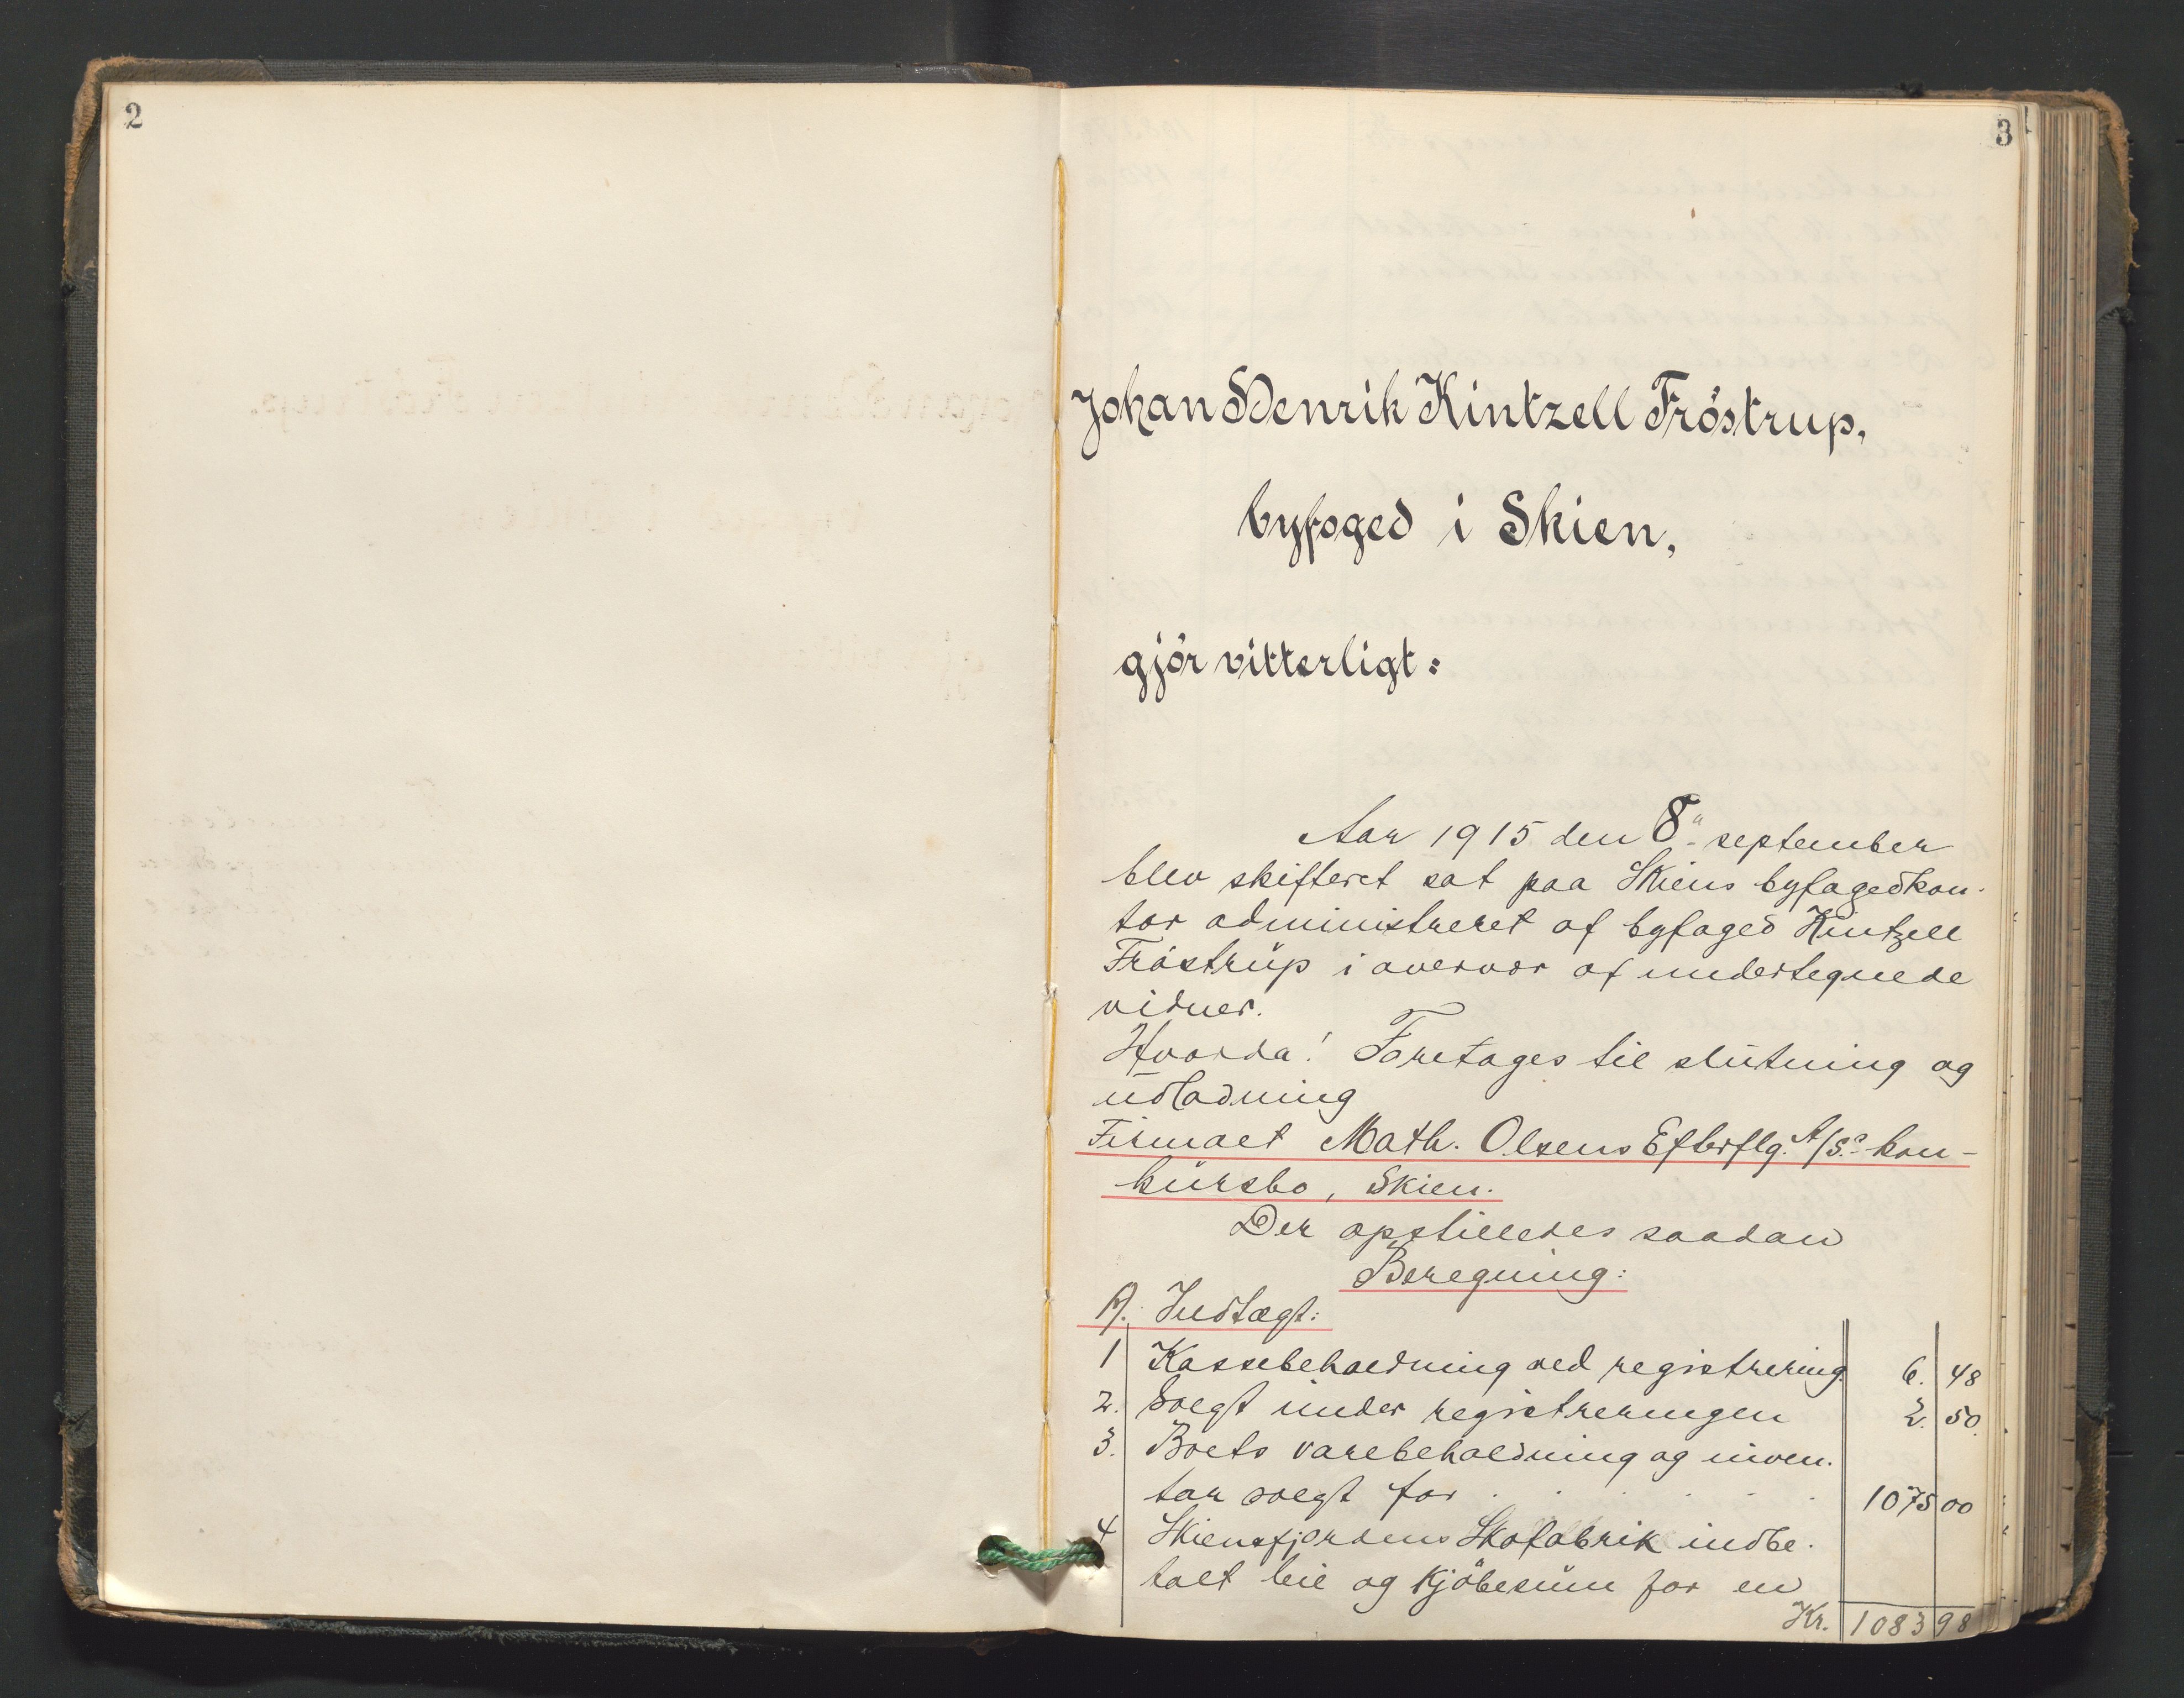 2
3
Johan Henrik Kintzell Fröstrup,
byfoged i Skien,
gjör vitterligt:
Aar 1915 den 8de september
blev skifteret sat paa Skiens byfogedkon-
tor administreret af byfoged Kintzell
Fröstrup i overvær af undertegnede
vidner.
Hvorda! Foretages til slutning og
udlodning
Firmaet Math. Olsens Efterflg. A/S.s kon-
kursbo, Skien.
Der opstilledes saadan
Beregning:
A. Indtægt:
1 Kassebeholdning ved registrering 6. 48
2. Solgt under registreringen 2. 50.
3. Boets varebeholdning og inven-
tar solgt for . . . . . . 1075 00
4 Skiensfjordens Skofabrik indbe-
talt leie og kjöbesum for en
Kr. 1083 98